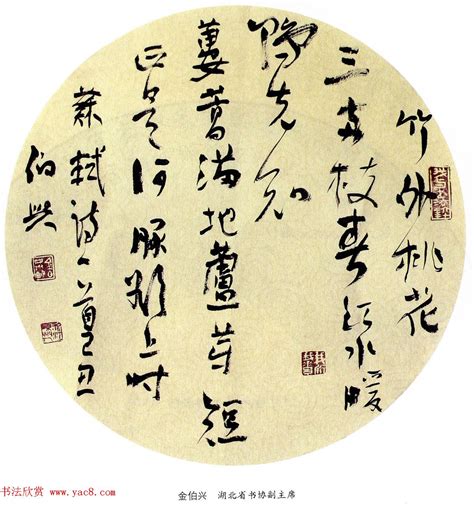 竹外桃花
三两枝春江水暖
鸭先知
蒌蒿满地蘆芽短
正是河豚欲上时
蘇轼诗一首
伯兴
书法欣赏 www.yac8.com
金伯兴 湖北省书协副主席